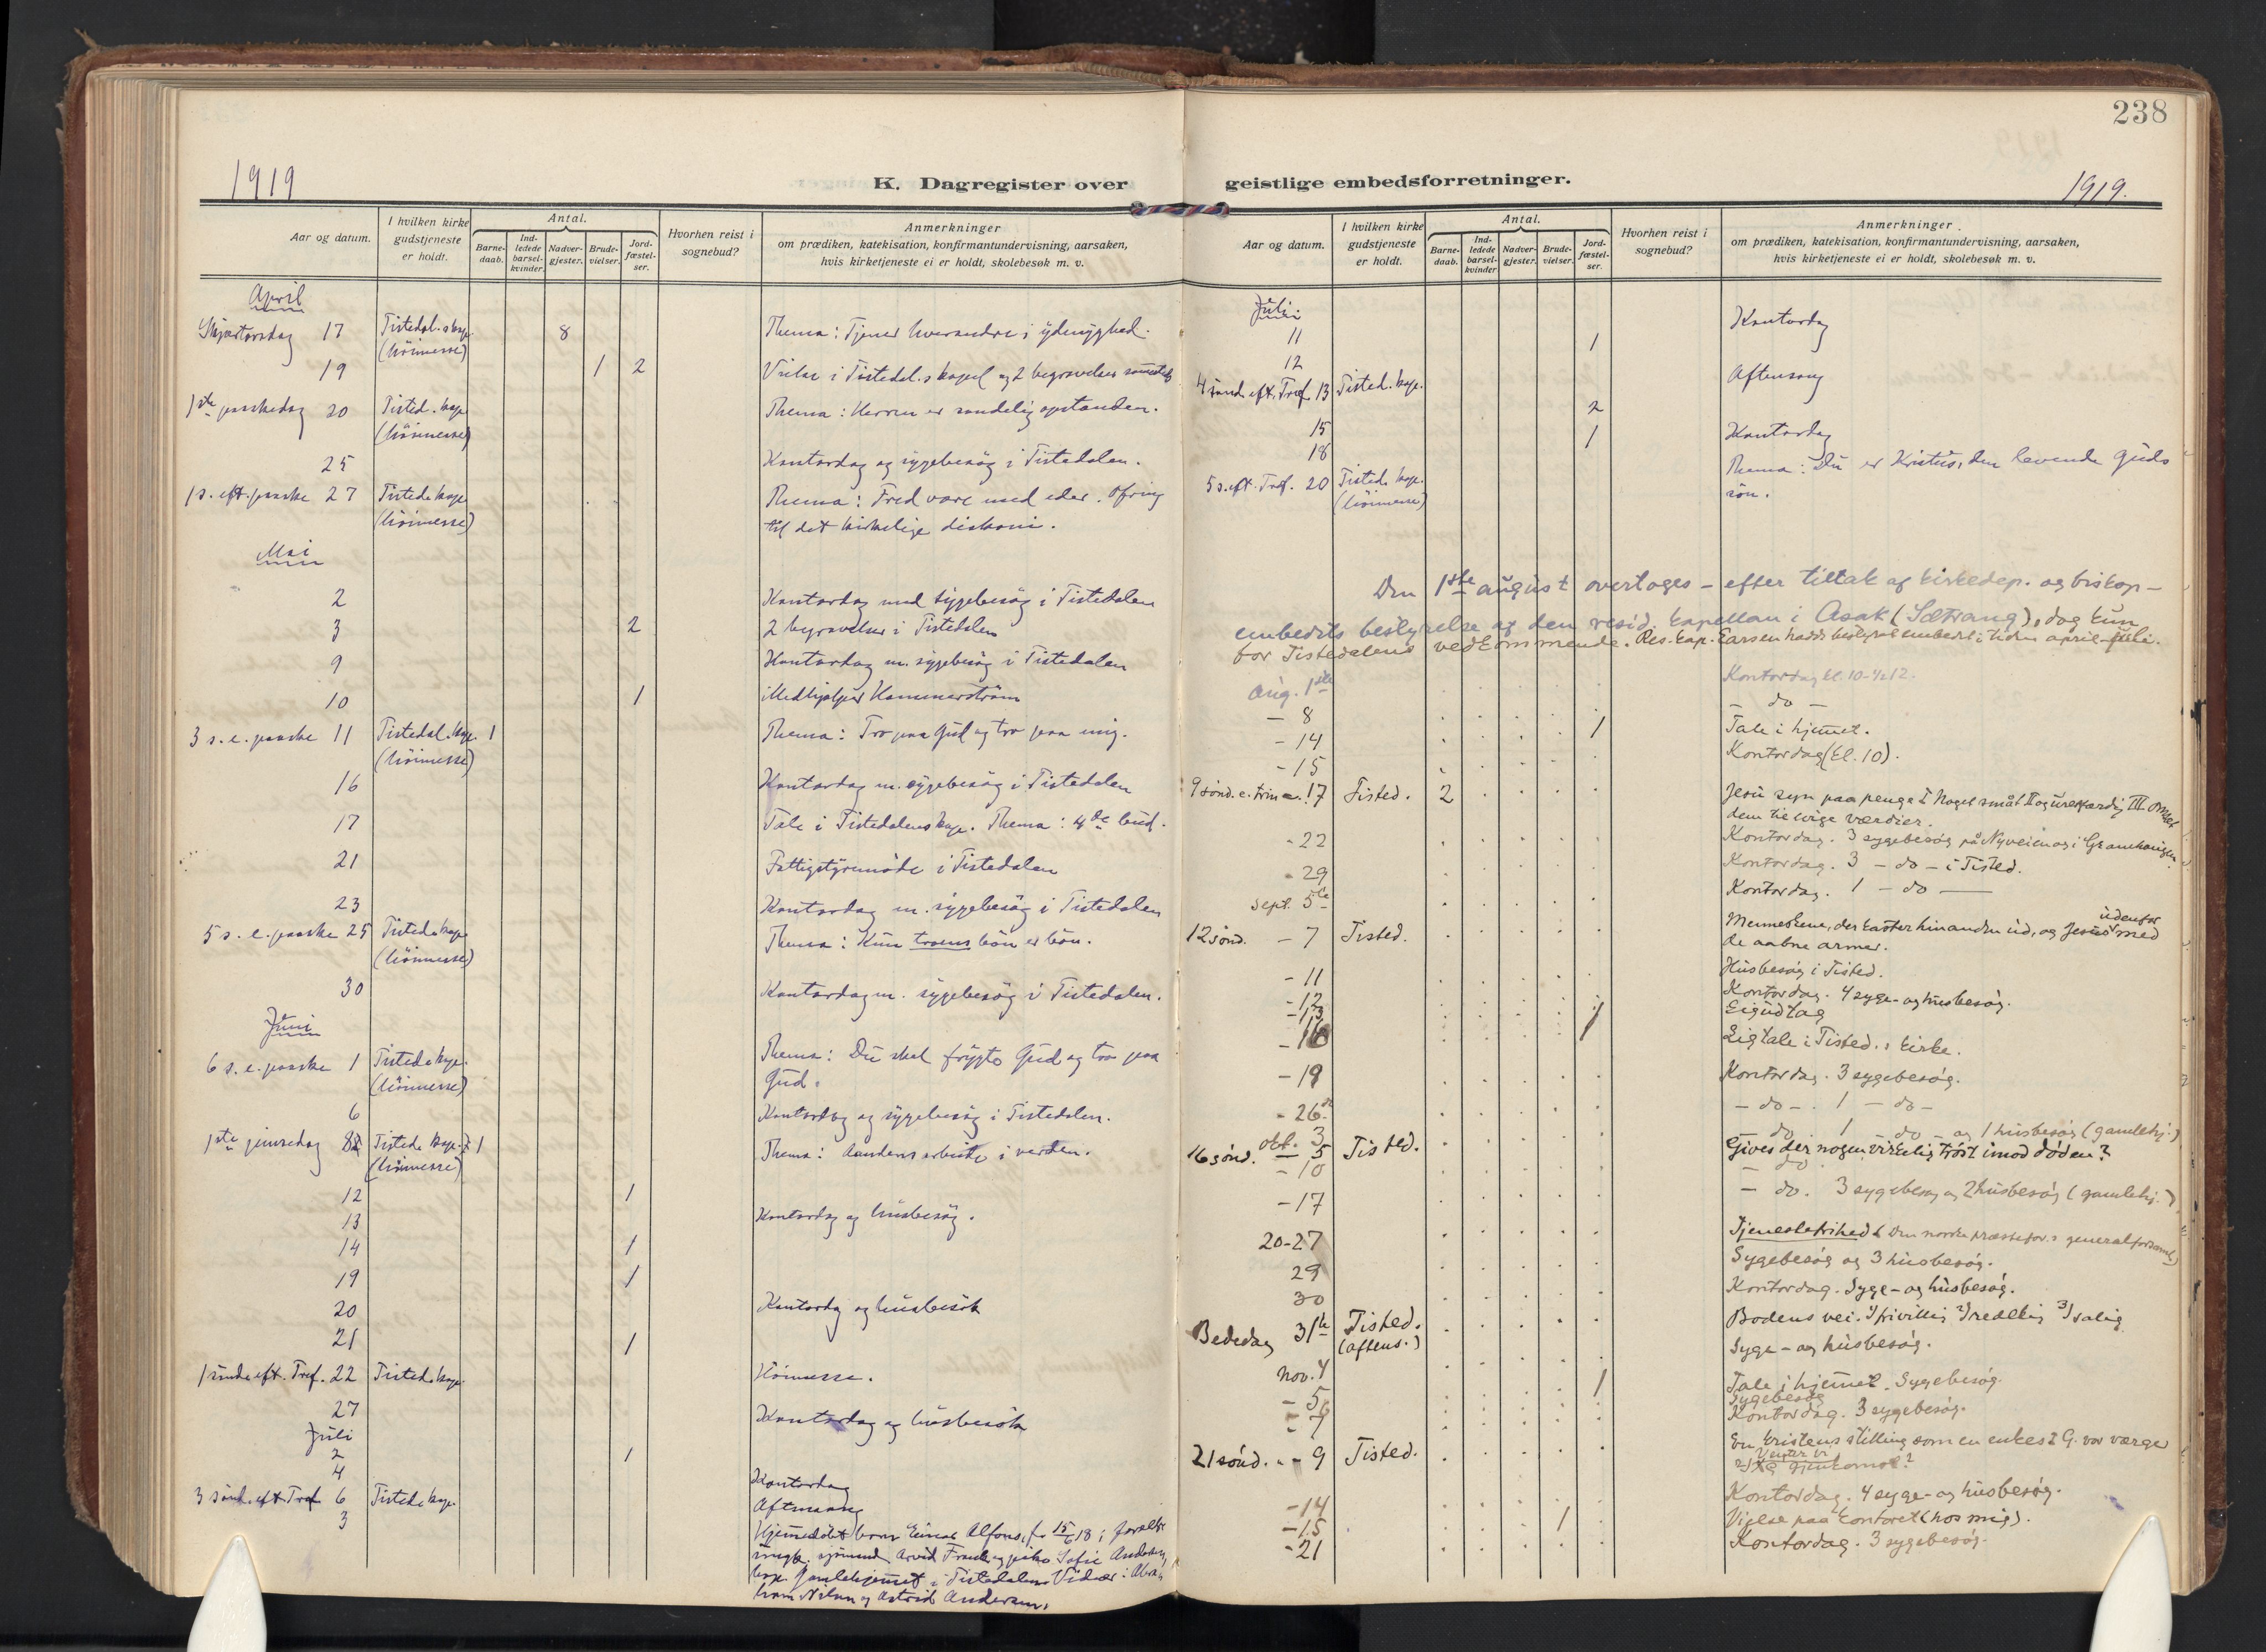 238
1919
K. Dagregister over
geistlige embedsforretninger.
1919.
Aar og datum.
I hvilken kirke gudstjeneste er holdt.
Antal.
Barne-daab.
Ind-ledede barsel-kvinder.
Nadver-gjester.
Brude-vielser.
Jord-fæstel-ser.
Hvorhen reist i sognebud?
Anmerkninger
om prædiken, katekisation, konfirmantundervisning, aarsaken,
hvis kirketjeneste ei er holdt, skolebesøk m. v.
April
Skjærtorsdag 17 Tistedal.s kap. 8 Thema: Tjener hverandre i ydmyghed.
(höimesse)
19 1 2 Vielse i Tistedal.s kapel og 2 begravelser
1ste paaskedag 20 Tisted. kap. Thema: Herren er sandelig opstanden.
(höimesse)
25 Kontordag og sygebesög i Tistedalen.
1 s. eft. paaske 27 Tisteds kap. Thema: Fred være med eder. Ofring
(höimesse) til det kirkelige diakoni.
Mai
2 Kontordag med sygebesög i Tistedalen
3 2 2 begravelser i Tistedalen
9 Kontordag m. sygebesög i Tistedalen
10 1 Medhjelper Hammerström
3 s. e. paaske 11 Tistedal. kap. 1 Thema: Tro paa Gud og tro paa mig.
(höimesse)
16 Kontordag m. sygebesög i Tistedalen
17 Tale i Tistedalens kap. Thema: 4de bud.
21 Fattigstyremöde i Tistedalen
23 Kontordag m. sygebesög i Tistedalen
5 s. e. paaske 25 Tisteds kap. Thema: Kun troens bön er bön.
(höimesse)
30 Kontordag m. sygebesög i Tistedalen.
Juni
6 s. e. paaske 1 Tisteds kap. Thema: Du skal frygte Gud og tro paa
(höimesse) Gud.
6 Kontordag og sygebesög i Tistedalen.
1ste pinsedag 8 Tisteds kap. 1 Thema: Aandens arbeide i verden.
(höimesse)
12 1
13 Kontordag og husbesög.
14 1
19 1
20 Kontordag og husbesök
21 1
1 sönd. eft. Tref. 22 Tisteds kap. Höimesse.
27 Kontordag og husbesök
Juli
2 1
4 Kontordag
3 sönd. eft. Tref 6 Tisteds kap. Aftensang
3 Hjemmedöbt barn Einar Alfons, f. 15/6 18 i forældre
sjömand Arvid og Sofie
kap. Gamlehjemmet i Tistedalen
Nilsen og Astrid Andersen.
Aar og datum.
I hvilken kirke gudstjeneste er holdt.
Antal.
Barne-daab.
Ind-ledede barsel-kvinder
Nadver-gjester.
Brude-vielser.
Jord-fæstel-ser.
Hvorhen reist i sognebud?
Anmerkninger
om prædiken, katekisation, konfirmantundervisning, aarsaken,
hvis kirketjeneste ei er holdt, skolebesøk m. v.
Juli
11 1 Kontordag
12
4 sönd. eft. Tref. 13 Tisted. kap. Aftensang
15 2
18 1 Kontordag
5 s. eft. Tref. 20 Tisteds kap. Thema: Du er Kristus, den levende Guds
(höimesse) sön.
Den 1ste august overtoges – efter tiltak af kirkedep. og biskop –
embedets bestyrelse af den resid. kapellan i Asak (Sætrang), dog kun
for Tistedalens vedkommende. Res. kap. Larsen hadde bestyret embedet i tiden april–juli.
aug. 1ste Kontordag kl. 10-½12.
– 8 – do –
– 14 1 Tale i hjemmet.
– 15 Kontordag (kl. 10).
9 sönd. e. trin. 17 Tisted. 2 Jesu syn paa penge I Noget småt II og uretfærdig III omsæt
dem til evige værdier.
- 22 Kontordag. 3 sygebesög på Nyveien og i
- 29 Kontordag. 3 – do – i Tisted.
sept. 5te Kontordag. 1 – do –
12 sönd. – 7 Tisted. Menneskene, der kaster hinanden ud, og Jesus udenfor med
de aabne armer.
– 11 Husbesög i Tisted.
– 12 Kontordag. 4 syge- og husbesög.
– 13 Ligudtag
– 16 1 Ligtale i Tisted.s kirke.
– 19 Kontordag. 3 sygebesög.
- 26 – do – . 1 – do –
okt. 3 – do 1 do – og 1 husbesög (gamlehj.)
16 sönd. – 5 Tisted. Gives der nogen virkelig tröst imod döden?
– 10 – do
– 17 – do. 3 sygebesög og 2 husbesög (gamlehj.)
20-27 Tjenestefrihed (Den norske præstefor.s generalforsaml.)
29 Sygebesög og 3 husbesög.
30 Kontordag. Syge- og husbesög.
Bededag 31te Tisted. Bodens vei. 1) frivillig 2) redelig 3) salig
(aftens.)
Syge- og husbesög.
nov. 4 1 Tale i hjemmet. Sygebesög.
– 5 Sygebesög
– 7 Kontordag. 3 sygebesög.
21 sönd. – 9 Tisted. En kristens stilling som en enkes 1 G. vor værge
– 14 Kontordag. 4 syge- og husbesög.
– 15 1 Vielse paa kontoret (hos mig).
- 21 Kontordag. 3 sygebesög.